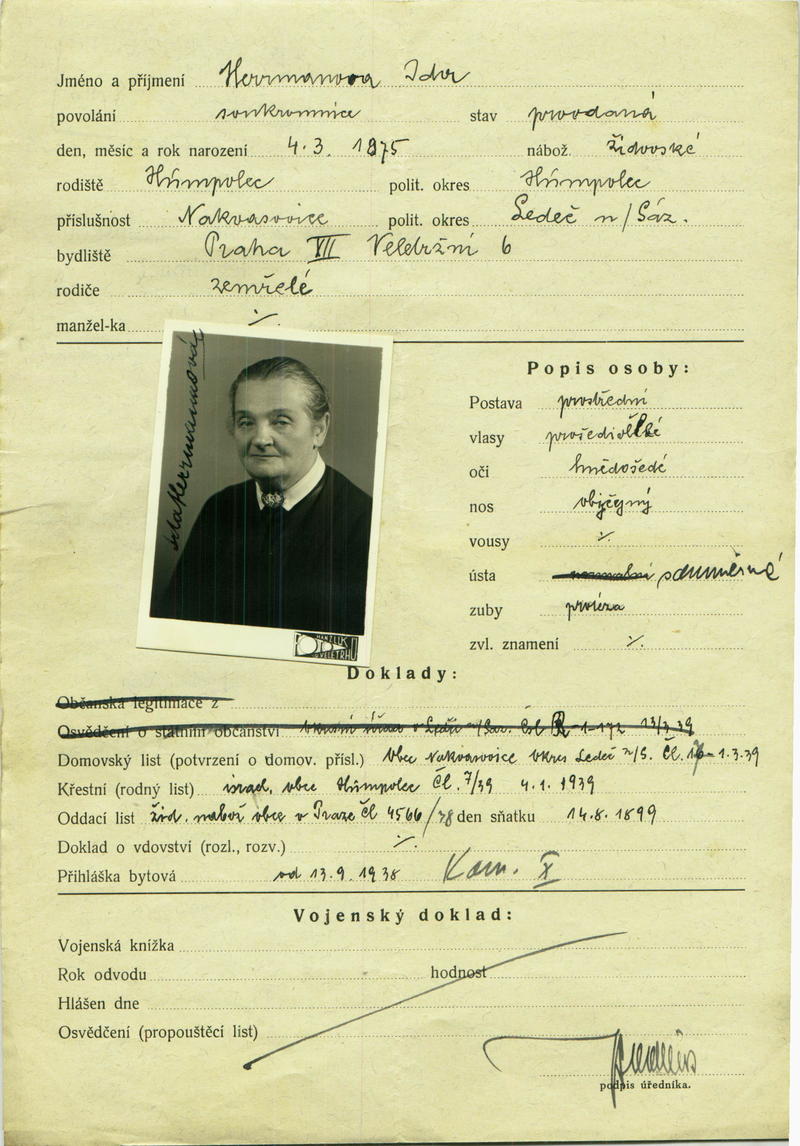 Jméno a příjmení Herrmanova Ida
povolání soukromnice stav provdaná
den, měsíc a rok narození 4.3. 1875 nábož. židovské
rodiště Húmpolec polit. okres Húmpolec
příslušnost Nakvasovice polit. okres Ledeč n/Sáz.
bydliště Praha VII Veletržní 6
rodiče zemřelé
manžel-ka ·/.
Ida Herrmannová
Popis osoby:
Postava prostřední
vlasy prošedivělé
oči hnědošedé
nos obyčejný
vousy ·/.
ústa normalní souměrné
zuby protéza
zvl. znamení ·/.
Doklady:
Občanská legitimace z
Osvědčení o státním občanství
Domovský list (potvrzení o domov. přísl.) Obec Nakvasovice Okres Ledeč n/S. Čl. 1.3.39
Křestní (rodný list) israel. obec Húmpolec Čl. 7/39 4.1.1939
Oddací list žid. nábož obec v Praze Čl 4566/38 den sňatku 14.8.1899
Doklad o vdovství (rozl., rozv.) ·/.
Přihláška bytová od 13.9.1938 Kam. X
Vojenský doklad:
Vojenská knížka
Rok odvodu hodnost
Hlášen dne
Osvědčení (propouštěcí list)
podpis úředníka.